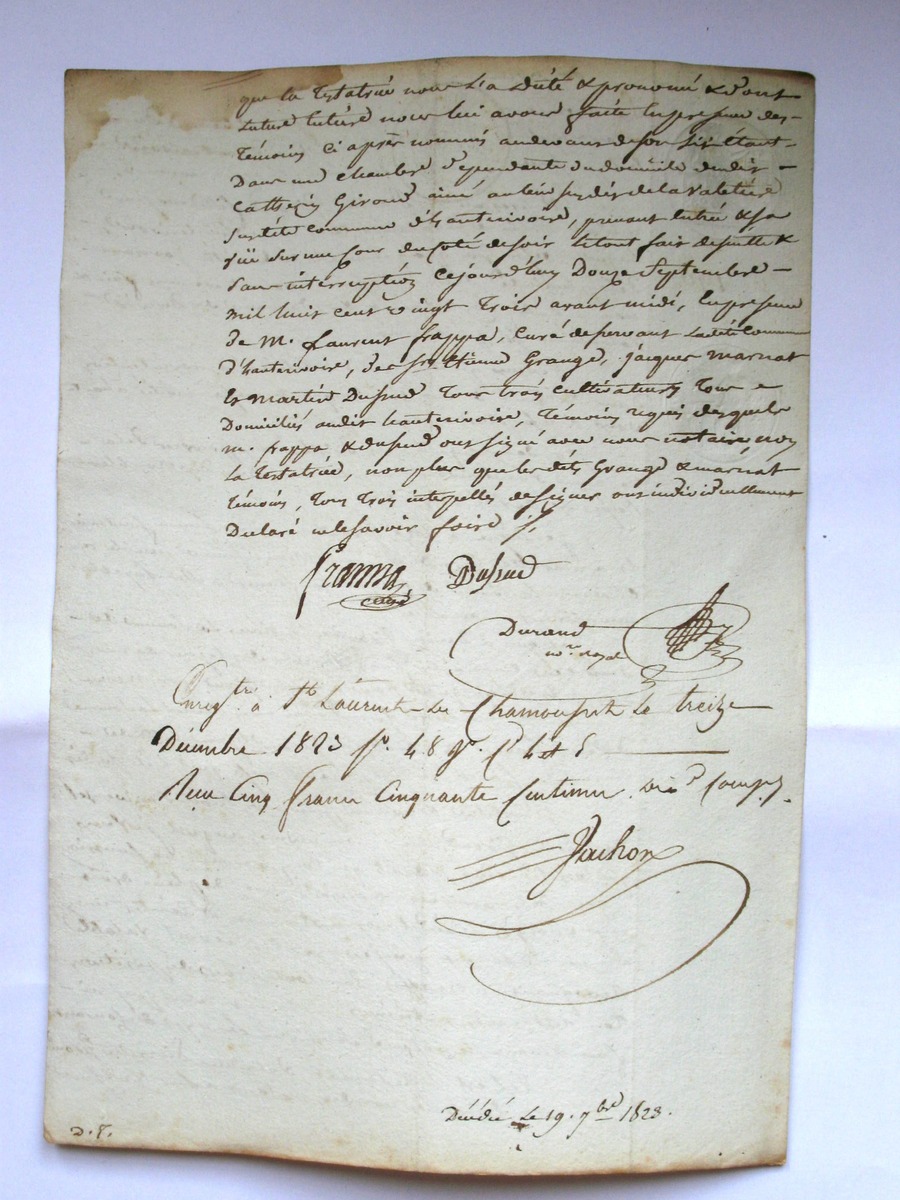 que la testatrice nous l'a dicté & prononcé & dont
lecture entière nous lui avons faite en présence des
témoins ci après nommés au devant de son lit étant
Dans une chambre dépendante du domicile dudit
Giroud aîné au lieu de la Valetière
susdite commune d'hauterivoire, prenant entrée & sa
vüe sur une cour du coté de soir le tout fait de suitte &
sans interruption cejourd'huy Douze Septembre
mil huit cent vingt trois avant midi, en présence
De M. Laurent frappa, curé desservant ladite Commune
d'hauterivoire, des srs Etienne Grange, jacques marnat
Et martin Dussud tous trois cultivateurs tous
Domiciliés audit hauterivoire, témoins requis desquels
m. frappa & dussud ont signé avec nous notaire, non
La testatrice, non plus que les dits Grange & marnat
témoins, tous trois interpellés de signer ont individuellement
Declaré ne le savoir faire
frappa Dussud
curé
Durand
nre royal
Enregtré à St Laurent de Chamousset le treize
Décembre 1823 fo. 48 Ro. Cs 4 et 5
Reçu Cinq francs Cinquante Centimes
Vachon
Décédée le 19. 7bre 1823.
D. T.